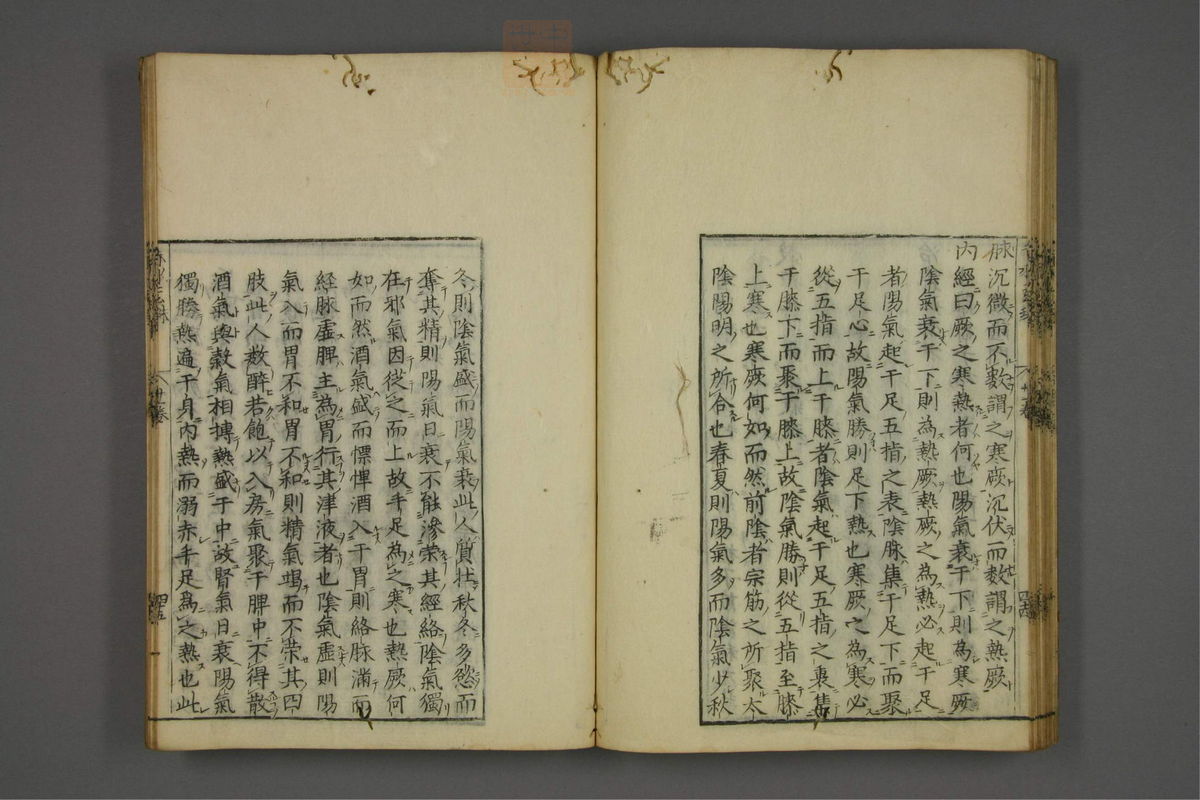 脉沉微而不數謂之寒厥沉伏而數謂之熱厥
內經曰厥之寒熱者何也陽氣衰于下則為寒厥
陰氣衰于下則為熱厥熱厥之為熱必起于足
者陽氣起于足五指之表陰脉集于足下而聚
于足心故陽氣勝則足下熱也寒厥之為寒必
從五指而上于膝者陰氣起于足五指之裏集
于膝下而聚于膝上故陰氣勝則從五指至膝
上寒也寒厥何如而然前陰者宗筋之所聚太
陰陽明之所合也春夏則陽氣多而陰氣少秋
冬則陰氣盛而陽氣衰此人質壮秋冬多慾而
奪其精則陽氣日衰不能滲荣其經絡陰氣獨
在邪氣因從之而上故手足為之寒也熱厥何
如而然酒氣盛而慓悍酒入于胃則絡脉滿而
経脉虛脾主為胃行其津液者也陰氣虛則陽
氣入而胃不和胃不和則精氣竭而不荣其四
肢此人数醉若飽以入房氣聚于脾中不得散
酒氣與穀氣相搏熱盛于中故腎氣日衰陽氣
獨勝熱遍于身內熱而溺赤手足為之熱也此